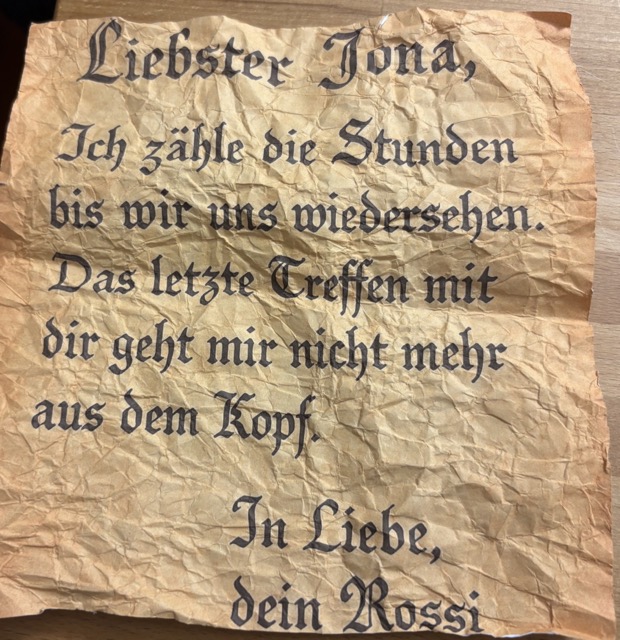 Liebster Jona,
Ich zähle die Stunden
bis wir uns wiedersehen.
Das letzte Treffen mit
dir geht mir nicht mehr
aus dem Kopf.
In Liebe,
dein Rossi